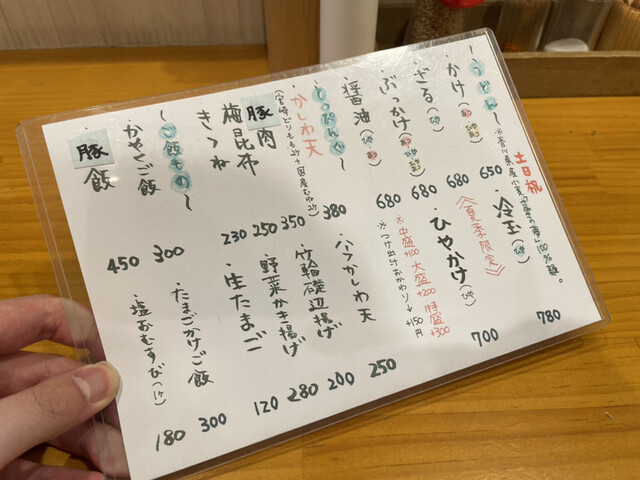 土日祝
〜うどん〜
※香川県産小麦「さぬきの夢」100%麺。
・かけ(あつ ひや) 650
・ざる(ひや) 680
・ぶっかけ(あつ ひや) 680
・醤油(ひや) 680
・冷玉(ひや) 780
《夏季限定》
ひやかけ(ひや) 700
※中盛+100 大盛+200 特盛+300
※つけ出汁おかわり→+150円
〜とっぴんぐ〜
・かしわ天 380
(宮崎どりもも2ケ+国産むね2ケ)
・豚肉 350
梅昆布 250
きつね 230
・ハーフかしわ天 250
・竹輪磯辺揚げ 200
・野菜かき揚げ 280
・生たまご 120
〜ご飯もの〜
・かやくご飯 300
・豚飯 450
・たまごかけご飯 300
・塩おむすび(1ケ) 180